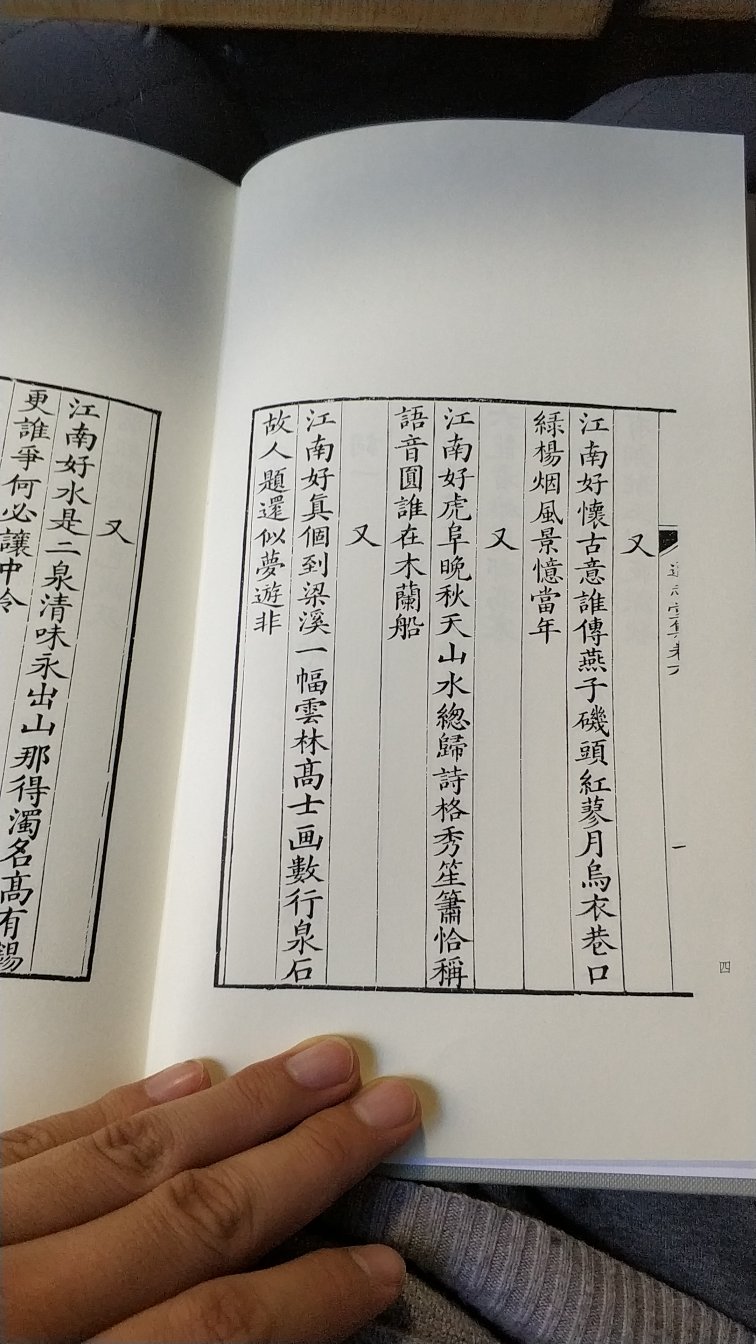 又
江南好懷古意誰傳燕子磯頭紅蓼月烏衣巷口
綠楊烟風景憶當年
又
江南好虎阜晚秋天山水總歸詩格秀笙簫恰稱
語音圓誰在木蘭船
又
江南好真個到梁溪一幅雲林髙士画數行泉石
故人題還似夢遊非
又
江南好水是二泉清味永出山那得濁名髙有錫
更誰爭何必讓中泠
一
四